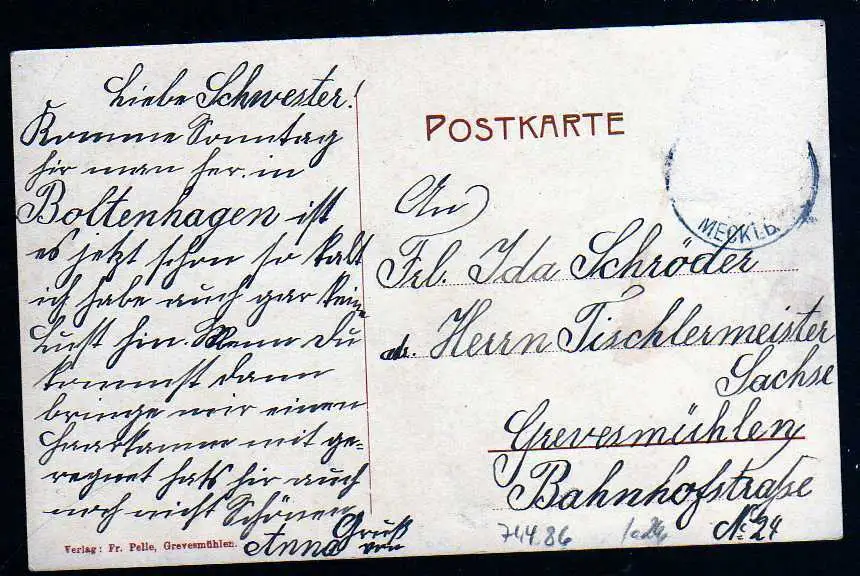 Liebe Schwester!
Komme Sonntag
hir man her. in
Boltenhagen ist
es jetzt schon so kalt
ich habe auch gar kein
Lust hin. Wenn Du
kommst dann
bringe mir einen
Haarkamm mit ge=
regnet hats hir auch
noch nicht Schönen
Gruß
von
Anna
POSTKARTE
MECKLB.
An
Frl. Ida Schröder
Herrn Tischlermeister
Sachse
Grevesmühlen
Bahnhofstraße
No 24
Verlag: Fr. Pelle, Grevesmühlen.